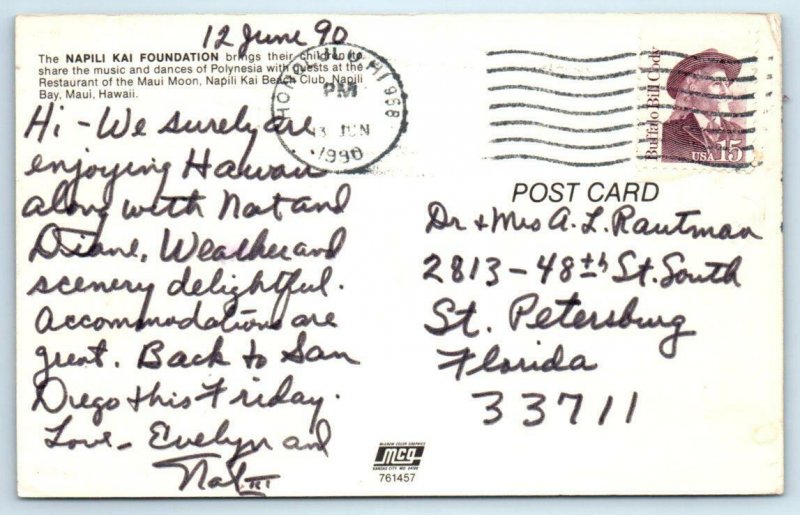 12 June 90
The NAPILI KAI FOUNDATION brings their children to
share the music and dances of Polynesia with guests at the
Restaurant of the Maui Moon, Napili Kai Beach Club, Napili
Bay, Maui, Hawaii.
Hi - We surely are
enjoying Hawaii
along with Nat and
Diane. Weather and
scenery delightful.
Accommodations are
great. Back to San
Diego this Friday.
Love - Evelyn and
Nat III
HONOLULU HI 968
PM
13 JUN
1990
Buffalo Bill Cody
USA 15
POST CARD
Dr + Mrs A. L. Rautman
2813 - 48th St. South
St. Petersburg
Florida
33711
McGREW COLOR GRAPHICS
mcg
KANSAS CITY, MO. 64108
761457